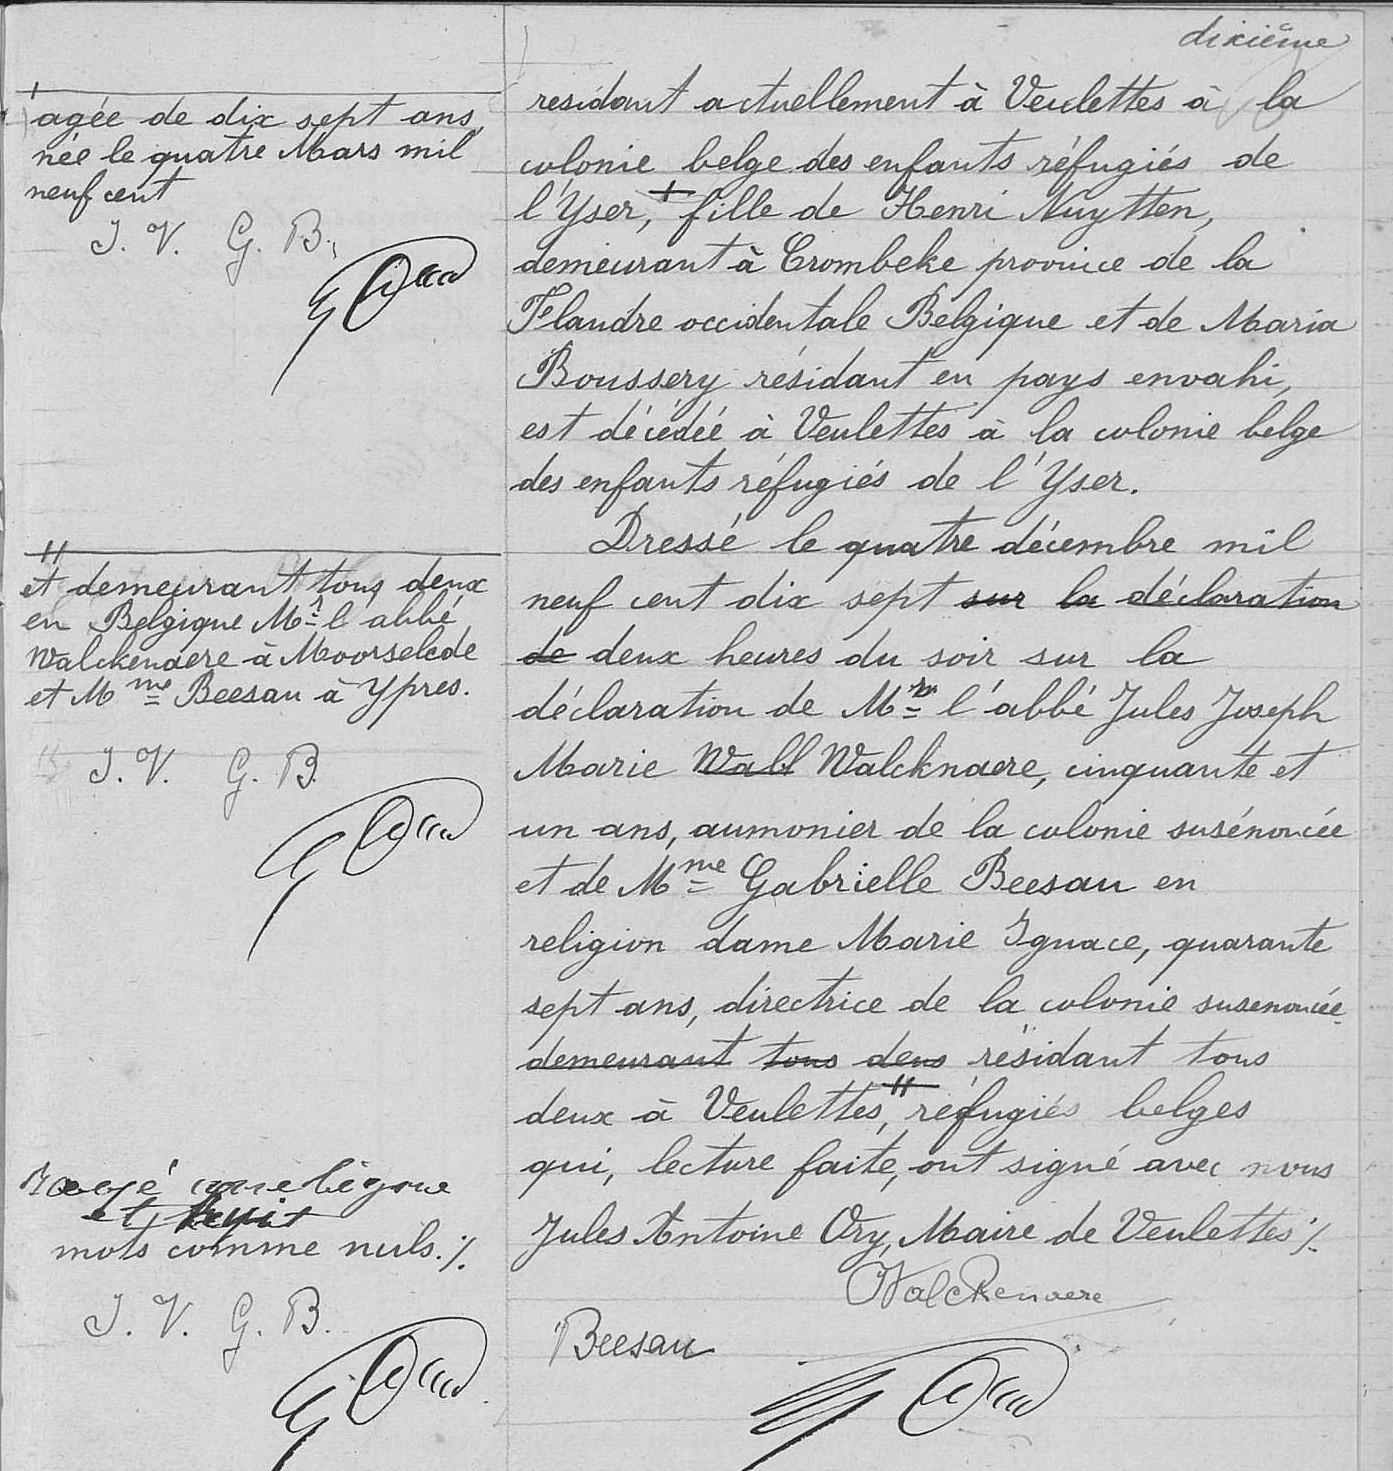 dixième
agée de dix sept ans,
née le quatre Mars mil
neuf cent
J. V. G. B.
résidant actuellement à Veulettes à la
colonie belge des enfants réfugiés de
l'Yser, + fille de Henri Nuytten,
demeurant à Crombeke province de la
Flandre occidentale Belgique et de Maria
Boussery résidant en pays envahi,
est décédée à Veulettes à la colonie belge
des enfants réfugiés de l'Yser.
Dressé le quatre décembre mil
neuf cent dix sept sur la déclaration
de deux heures du soir sur la
déclaration de Mr l'abbé Jules Joseph
Marie Wabl Walcknaere, cinquante et
un ans, aumonier de la colonie susénoncée
et de Mme Gabrielle Beesau en
religion dame Marie Ignace, quarante
sept ans, directrice de la colonie susenoncée
demeurant tous deus résidant tous
deux à Veulettes, # réfugiés belges
qui, lecture faite, ont signé avec nous
Jules Antoine Ory, Maire de Veulettes ./.
#
et demeurant tous deux
en Belgique Mr l'abbé
Walckenaere à Moorselede
et Mme Beesau à Ypres.
J. V. G. B.
et huit
mots comme nuls ./.
J. V. G. B.
Walckenaere
Beesau